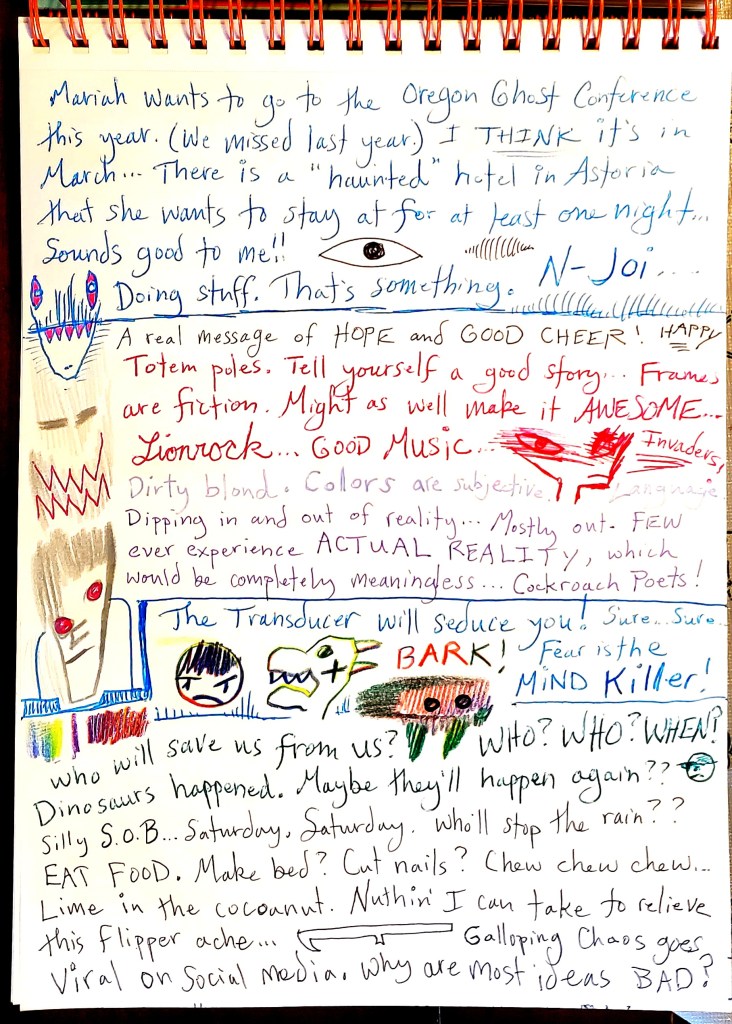 Mariah wants to go to the Oregon Ghost Conference
this year. (We missed last year.) I THINK it's in
March... There is a "haunted" hotel in Astoria
that she wants to stay at for at least one night...
Sounds good to me!! N-Joi....
Doing stuff. That's something.
A real message of HOPE and GOOD CHEER! HAPPY
Totem poles. Tell yourself a good story... Frames
are fiction. Might as well make it AWESOME...
Lionrock... GOOD MUSIC... Invaders,
Dirty blond. Colors are subjective. Language
Dipping in and out of reality... Mostly out. FEW
ever experience ACTUAL REALITY, which
would be completely meaningless... Cockroach Poets!
The Transducer will seduce you! Sure... Sure...
BARK! Fear is the
MiND Killer!
who will save us from us? WHO? WHO? WHEN?
Dinosaurs happened. Maybe they'll happen again??
Silly S.O.B... Saturday. Saturday. Who'll stop the rain??
EAT FOOD. Make bed? Cut nails? Chew chew chew...
Lime in the cocoanut. Nuthin' I can take to relieve
this flipper ache... Galloping Chaos goes
Viral on Social Media. Why are most ideas BAD?